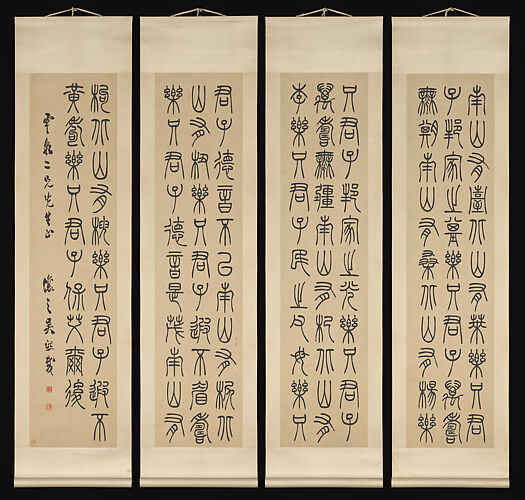 南山有臺北山有萊樂只君
子邦家之基樂只君子萬壽
無期南山有桑北山有楊樂
只君子邦家之光樂只君子
萬壽無疆南山有杞北山有
李樂只君子民之父母樂只
君子德音不已南山有栲北
山有杻樂只君子遐不眉壽
樂只君子德音是茂南山有
枸北山有楰樂只君子遐不
黃耇樂只君子保艾爾後
雲二兄先生正 讓之吳熙載